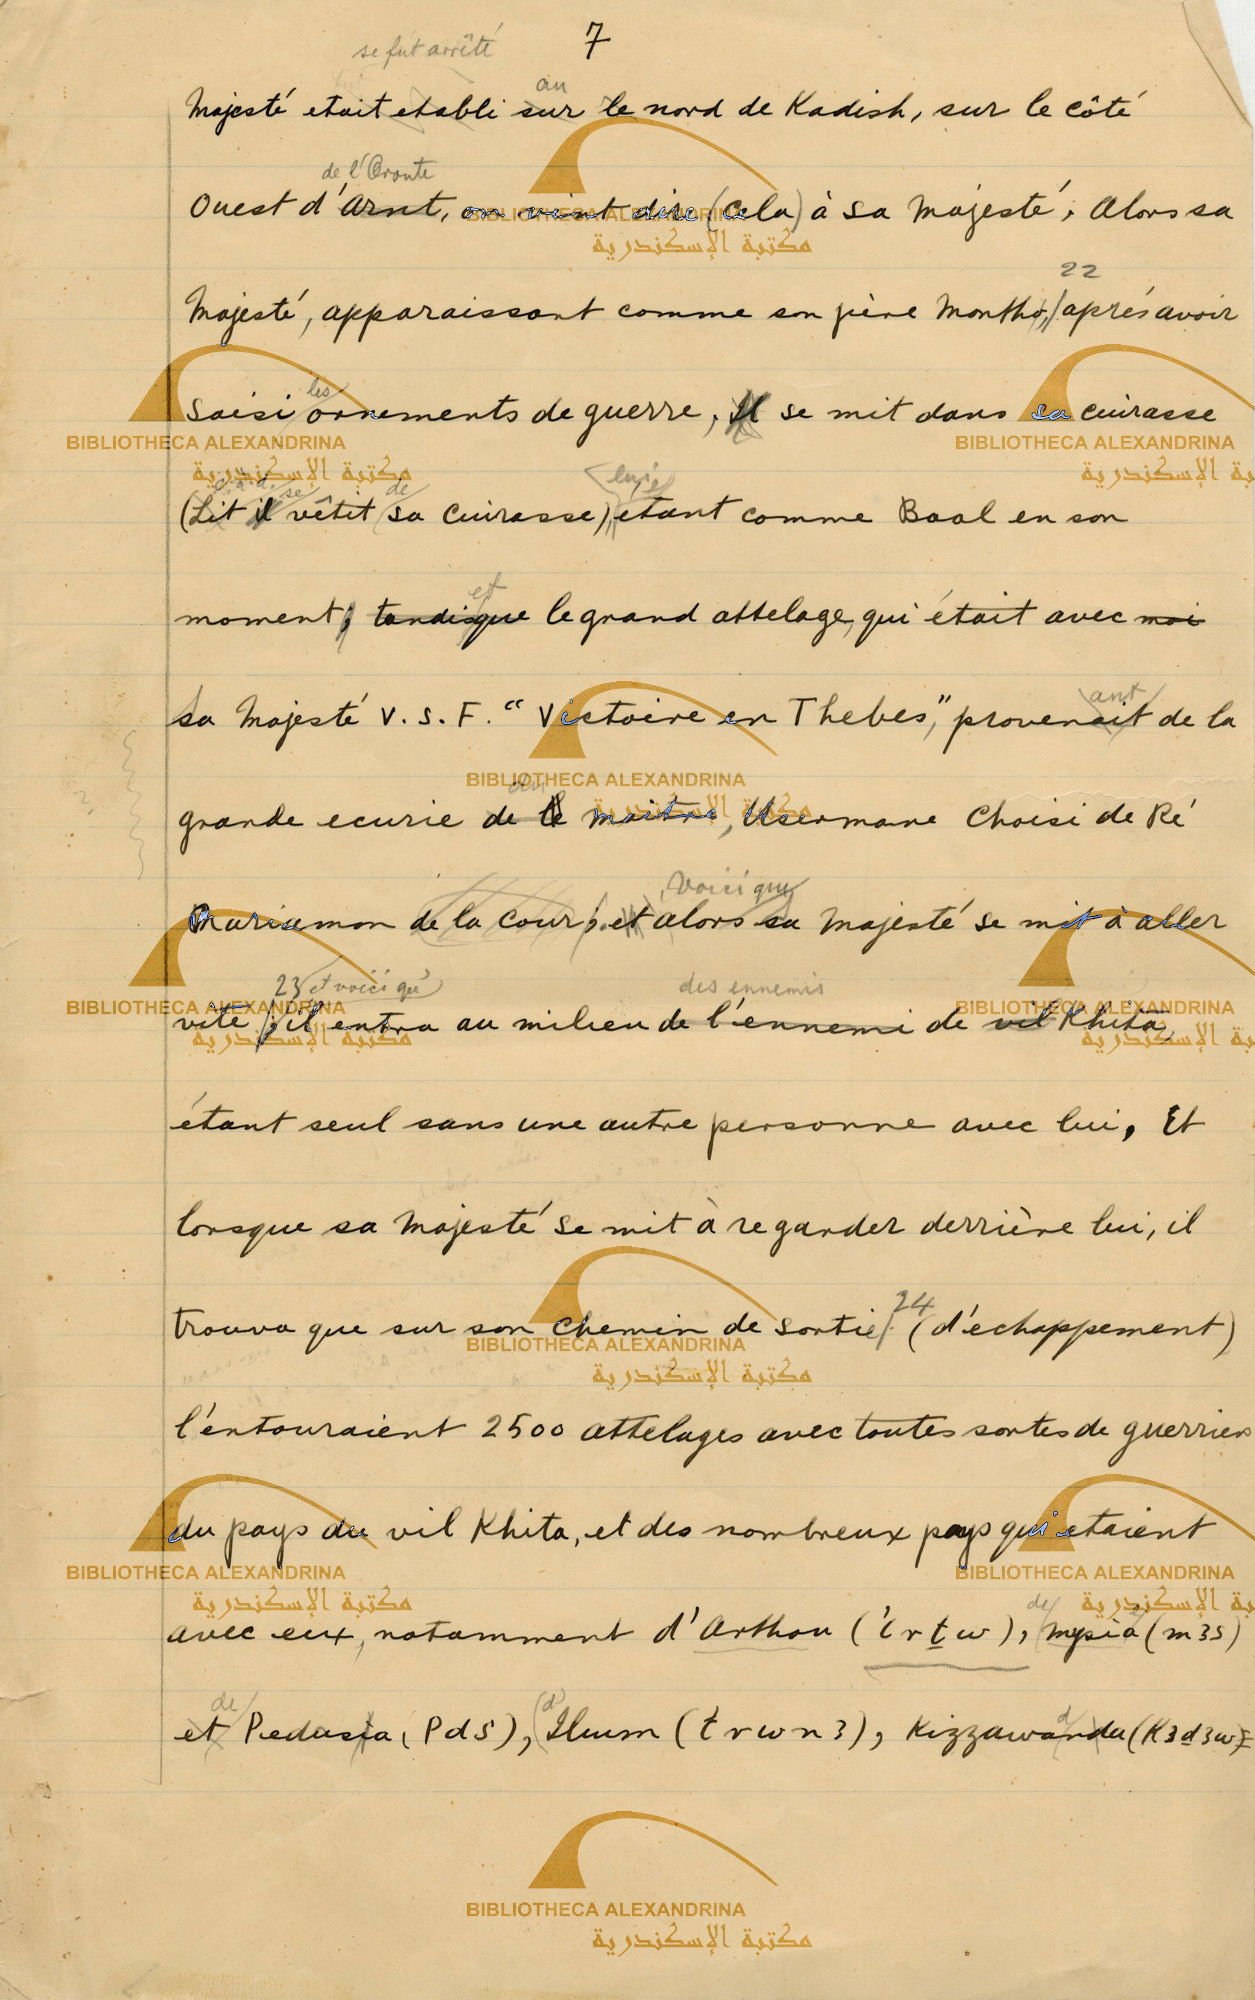 7
se fut arrêté
au
Majesté etait etabli sur le nord de Kadish, sur le côté
de l'Oronte
Ouest d'Arnt, on vint dire (cela) à sa Majesté. Alors sa
22
Majesté, apparaissant comme son père Montho, / après avoir
les
Saisi ornements de guerre, Il se mit dans sa cuirasse
c.à.d. se de
(Lit il vêtit sa cuirasse), etant comme Baal en son
et
moment, tandisque le grand attelage, qui était avec moi
ant
sa Majesté V. S. F. "Victoire en Thebes," provenait de la
grande ecurie de le maitre, Usermare Choisi de Ré
Voici que
Mariamon de la cour, et alors sa Majesté se mit à aller
23 et voici qu' des ennemis
vite / , il entra au milieu de l'ennemi de vil Khita
étant seul sans une autre personne avec lui, Et
lorsque sa Majesté se mit à regarder derrière lui, il
24
trouva que sur son chemin de sortie / (d'échappement)
l'entouraient 2500 attelages avec toutes sortes de guerriers
du pays du vil Khita, et des nombreux pays qui etaient
de
avec eux, notamment d'Arthou ('Irṯw), Mysia (m3s)
de (d'
et Pedasia (Pds), Ilium (trwn3), Kizzawanda (K3d3w
BIBLIOTHECA ALEXANDRINA
مكتبة الإسكندرية